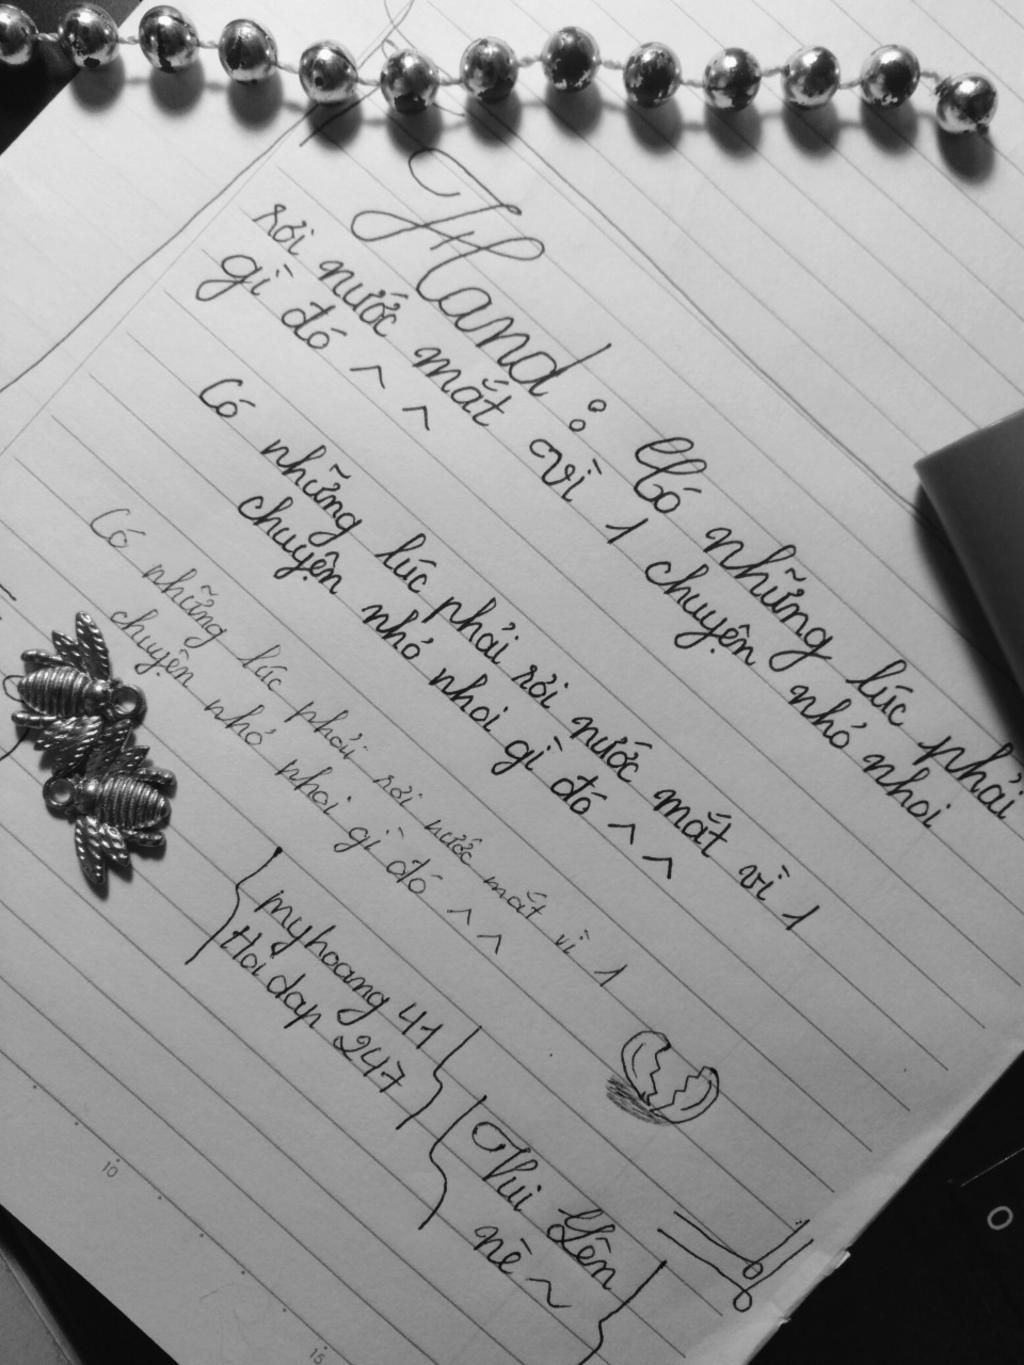 Hand : Có những lúc phải
rơi nước mắt vì 1 chuyện nhỏ nhoi
gì đó ^ ^
Có những lúc phải rơi nước mắt vì 1
chuyện nhỏ nhoi gì đó ^ ^
Có những lúc phải rơi nước mắt vì 1
chuyện nhỏ nhoi gì đó ^ ^
myhoang 41
Hoidap 247
Thui Yên
nè ~
10
15